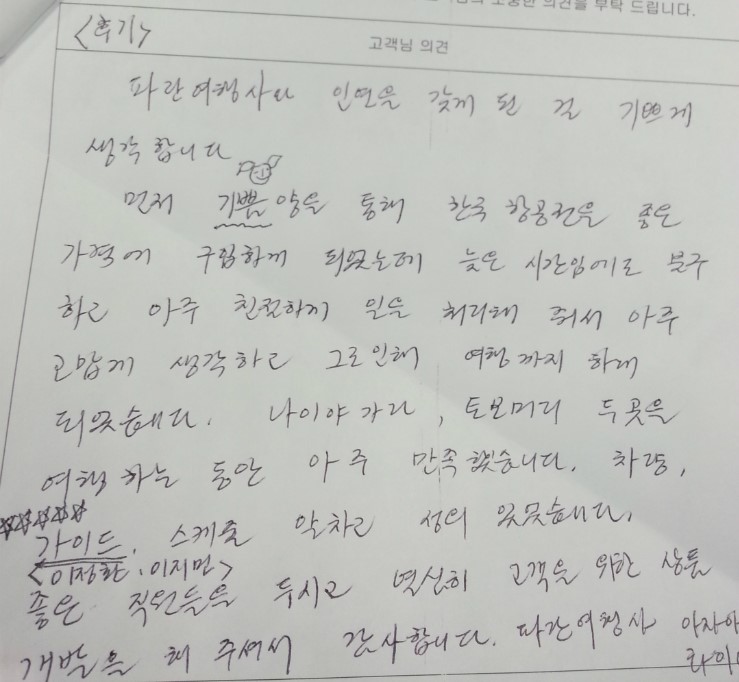 소중한 의견을 부탁 드립니다.
<후기>
고객님 의견
파란여행사와 인연을 갖게 된 걸 기쁘게
생각합니다
먼저 기쁨양을 통해 한국 항공권을 좋은
가격에 구입하게 되었는데 늦은 시간임에도 불구
하고 아주 친절하게 일을 처리해 줘서 아주
고맙게 생각하고 그로인해 여행까지 하게
되었습니다. 나이야가라, 토보머리 두곳을
여행하는 동안 아주 만족했습니다. 차량,
가이드, 스케줄 알차고 성의 있었습니다.
<이정환, 이지민>
좋은 직원들을 두시고 열심히 고객을 위한 상품
개발을 해 주셔서 감사합니다. 파란여행사 아자아